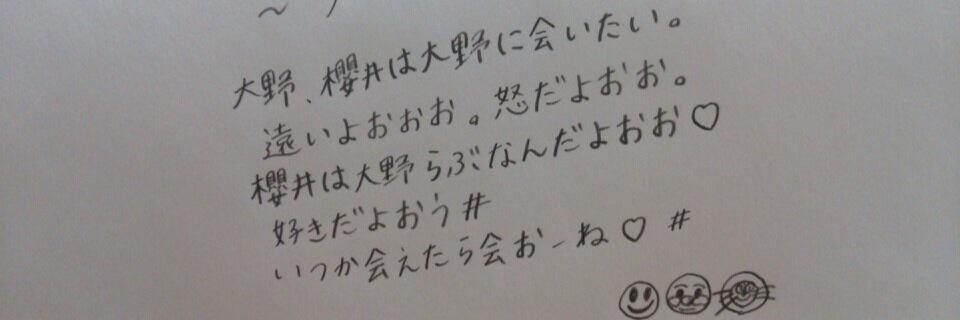 大野、櫻井は大野に会いたい。
遠いよおおお。怒だよおお。
櫻井は大野らぶなんだよおお♡
好きだよおう#
いつか会えたら会おーね♡ #